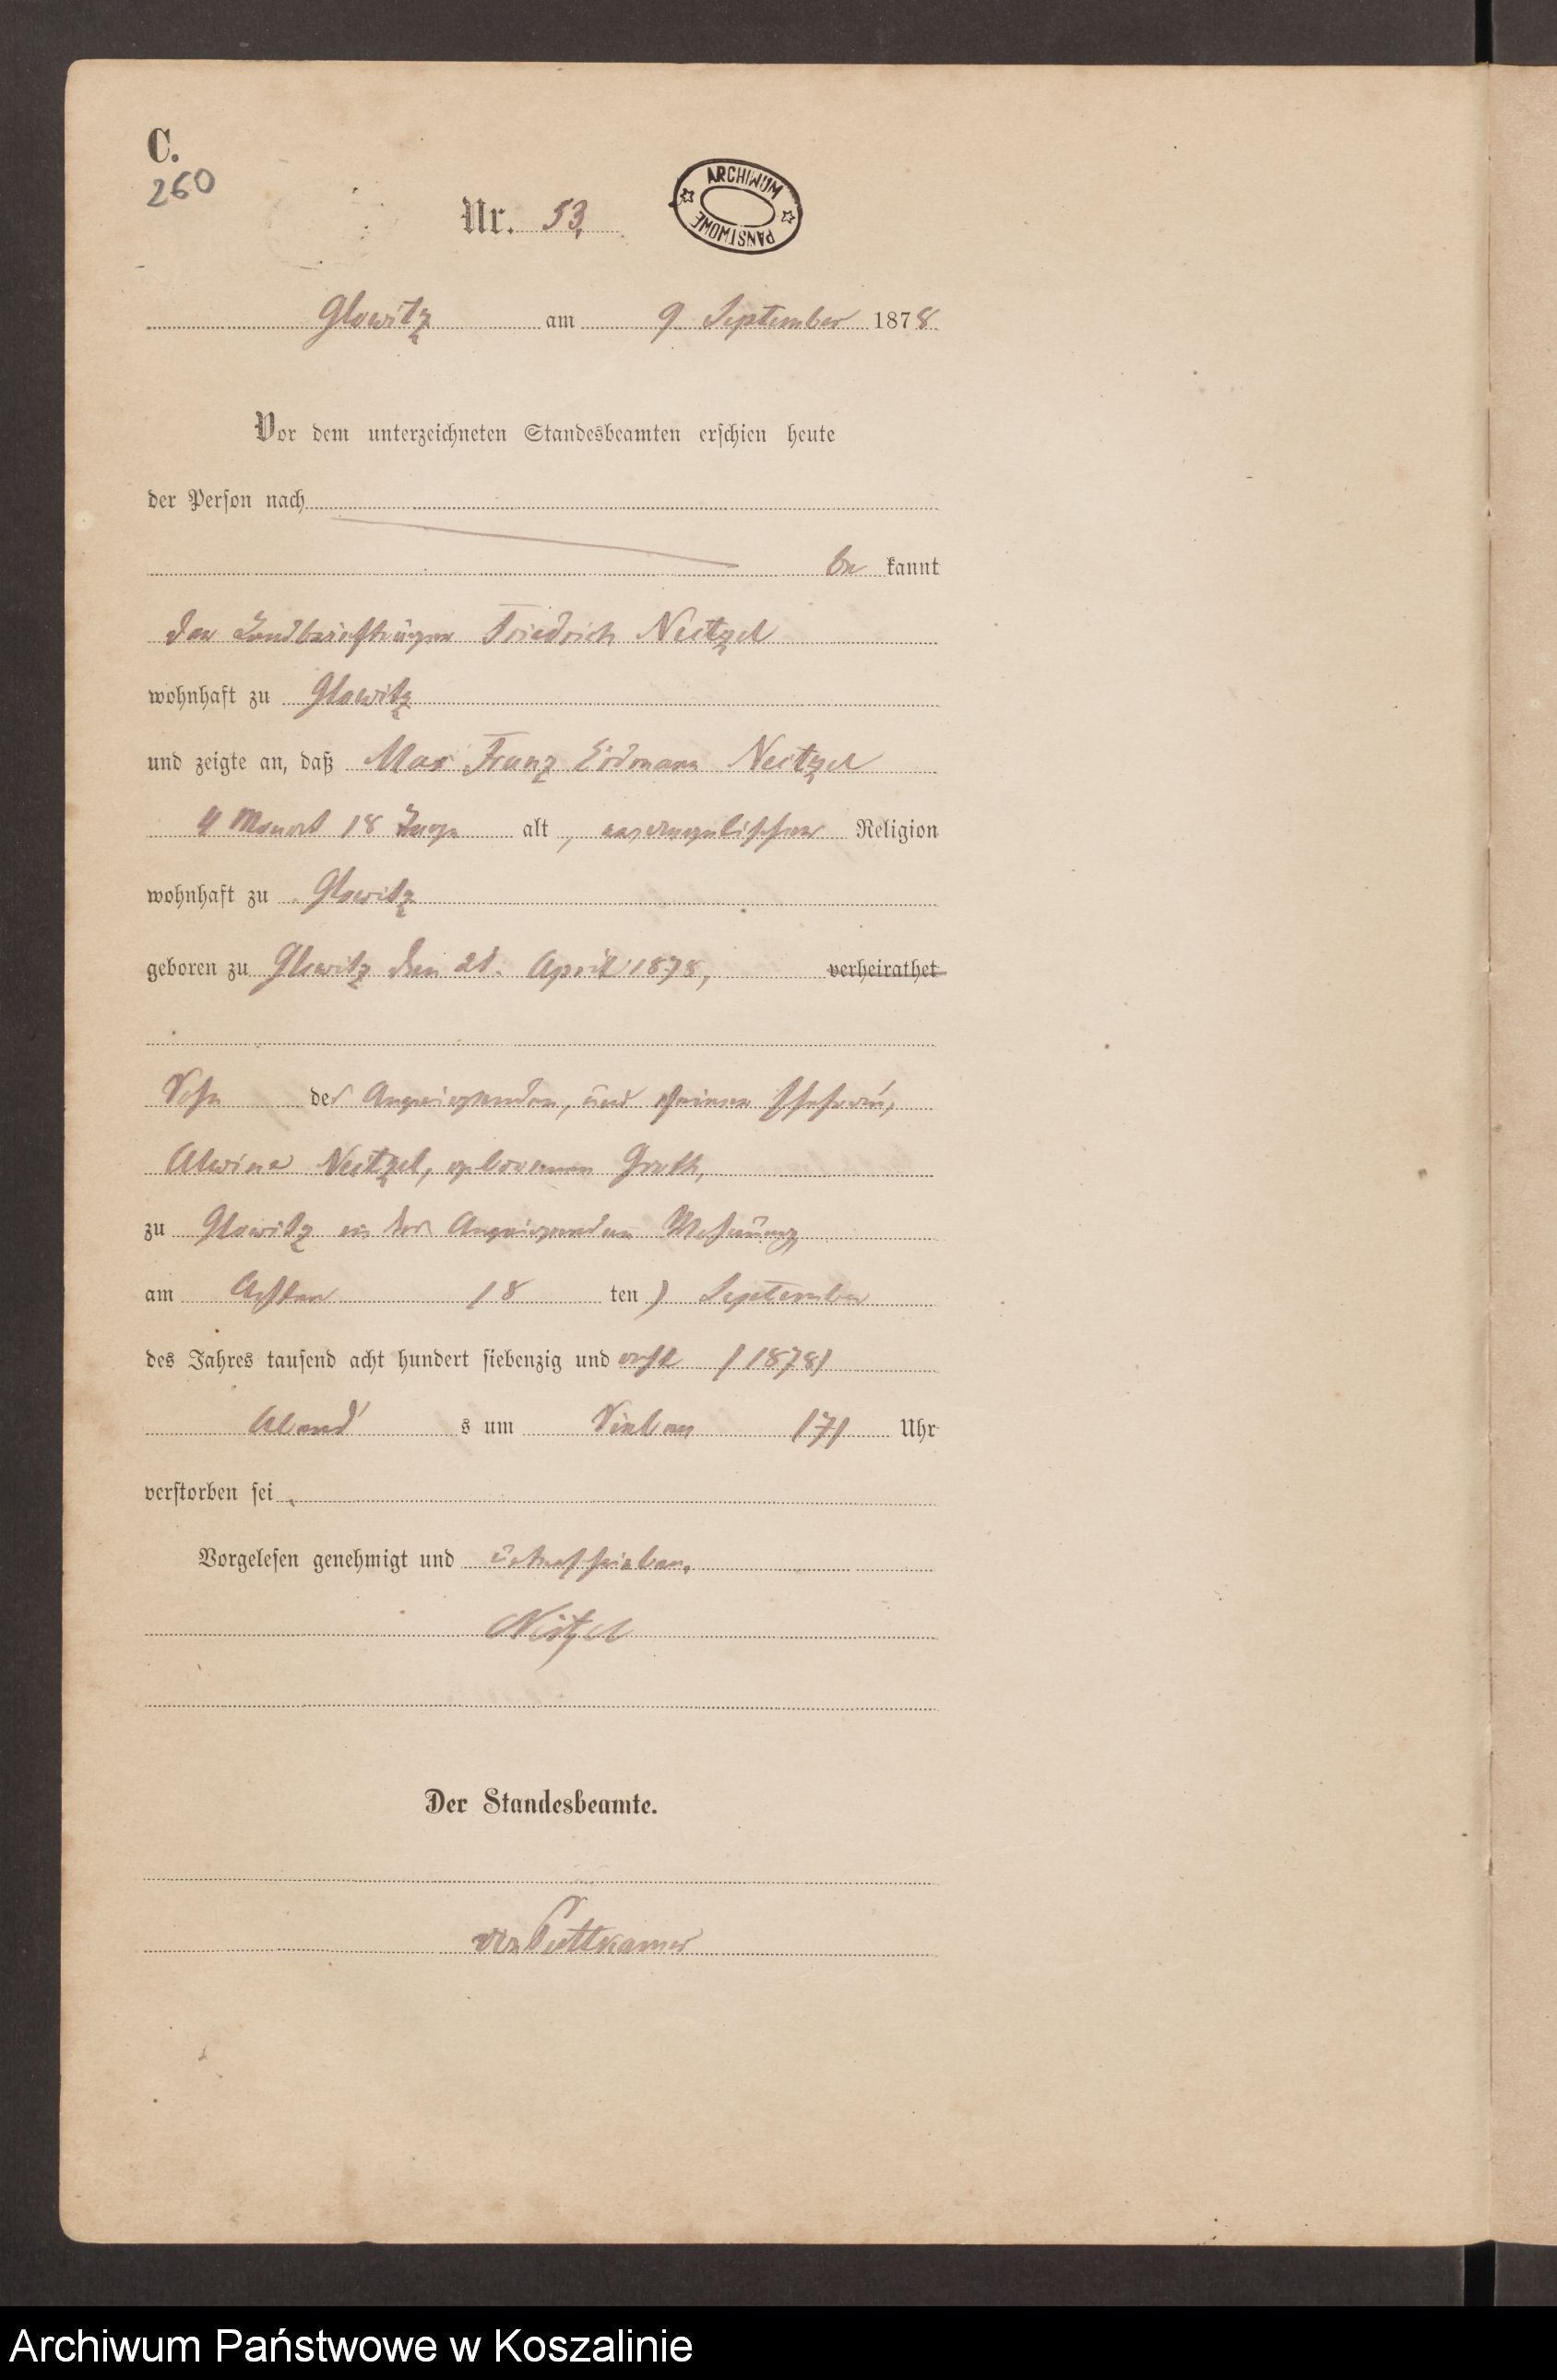 C.
260
Nr. 53.
ARCHIWUM PAŃSTWOWE
Glowitz am 9. September 1878.
Vor dem unterzeichneten Standesbeamten erschien heute
der Person nach
be kannt
der Landbriefträger Friedrich Neitzel
wohnhaft zu Glowitz
und zeigte an, daß Max Franz Erdmann Neitzel
4 Monat 18 Tage alt, evangelischer Religion
wohnhaft zu Glowitz
geboren zu Glowitz den 21. April 1878, verheirathet
Sohn des Anzeigenden, und seiner Ehefrau,
Alwine Neitzel, geborenen Groth,
zu Glowitz in des Anzeigenden Wohnung
am Achten (8 ten) September
des Jahres tausend acht hundert siebenzig und acht (1878)
Abend s um Sieben (7) Uhr
verstorben sei.
Vorgelesen genehmigt und unterschrieben.
Neitzel
Der Standesbeamte.
von Puttkamer
Archiwum Państwowe w Koszalinie